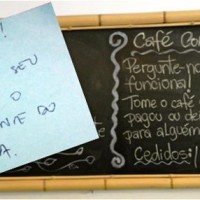 !
SEU
O
NTE DO
A.
Café Com
Pergunte-no
funciona!
Tome o café
pagou ou dei
para alguém
Cedidos: